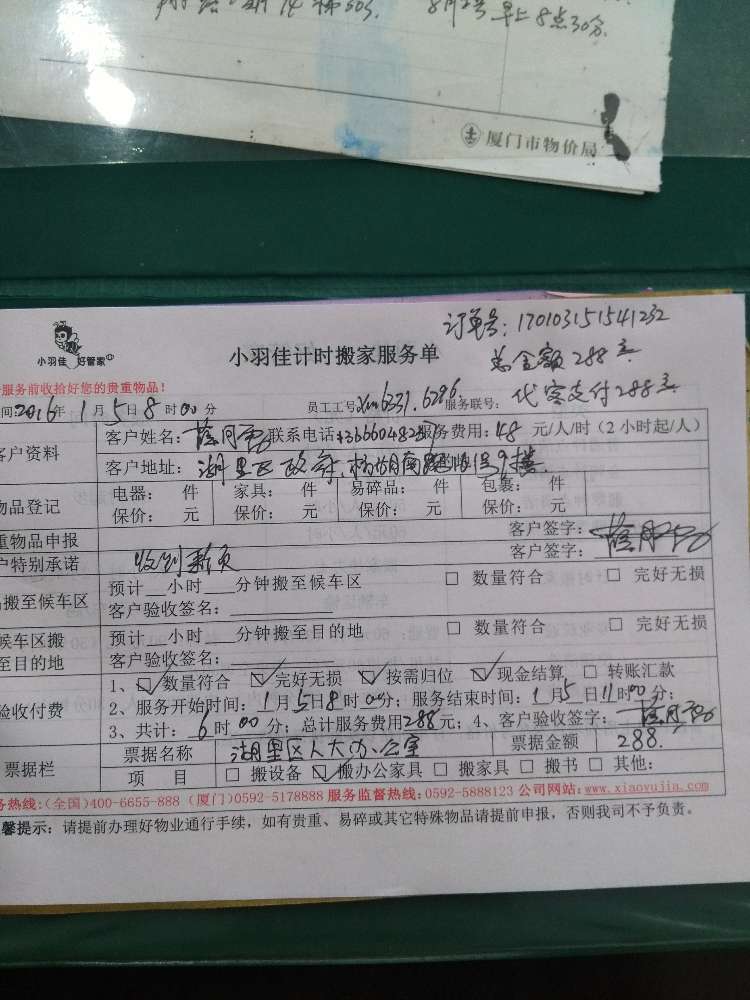 8月2号早上8点30分
厦门市物价局
订单号：170103151541232
小羽佳 好管家
小羽佳计时搬家服务单
总金额288元
服务前收拾好您的贵重物品！
代客支付288元
间：2016年1月5日8时00分 员工工号 6331.6296 服务联号：
客户资料
客户姓名： 联系电话 服务费用：48元/人/时（2小时起/人）
客户地址：湖里区政府 9楼
物品登记
电器： 件 家具： 件 易碎品： 件 包裹： 件
保价： 元 保价： 元 保价： 元 保价： 元
重物品申报 客户签字：
户特别承诺 收到 客户签字：
搬至候车区
预计__小时___分钟搬至候车区 □ 数量符合 □ 完好无损
客户验收签名：
候车区搬至目的地
预计__小时___分钟搬至目的地 □ 数量符合 □ 完好无损
客户验收签名：
验收付费
1、☑数量符合 ☑完好无损 ☑按需归位 ☑现金结算 □ 转账汇款
2、服务开始时间：1月5日8时00分；服务结束时间：1月5日11时00分；
3、共计：6时00分；总计服务费用288元；4、客户验收签字：
票据栏
票据名称 湖里区人大办公室 票据金额 288.
项 目 □ 搬设备 ☑搬办公家具 □ 搬家具 □ 搬书 □ 其他：
务热线：(全国)400-6655-888 (厦门)0592-5178888 服务监督热线：0592-5888123 公司网站：www.xiaoyujia.com
馨提示：请提前办理好物业通行手续，如有贵重、易碎或其它特殊物品请提前申报，否则我司不予负责。